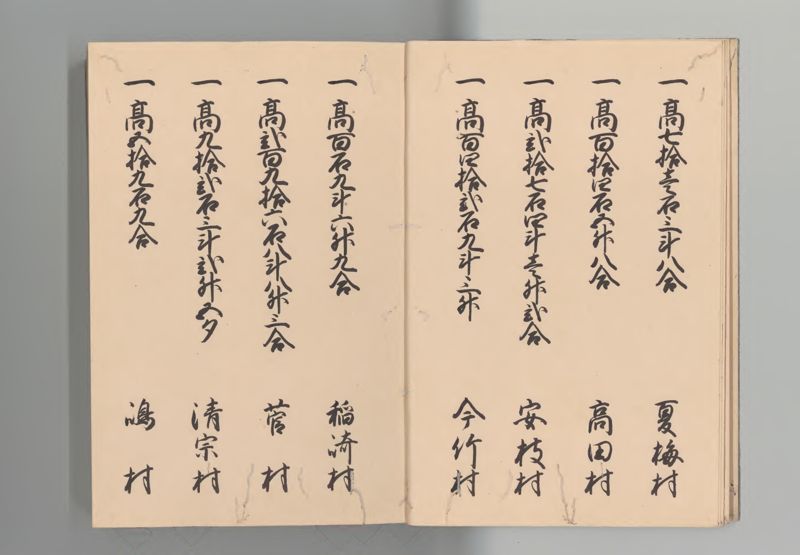 一高七拾壱石三斗八合 夏梅村
一高百拾四石五升八合 高田村
一高弐拾七石四斗壱升弐合 安枝村
一高百四拾弐石九斗三升 今竹村
一高百石九斗六升九合 稲崎村
一高弐百九拾六石八斗八升三合 菅村
一高九拾弐石三斗弐升五夕 清宗村
一高五拾九石九合 嶋村